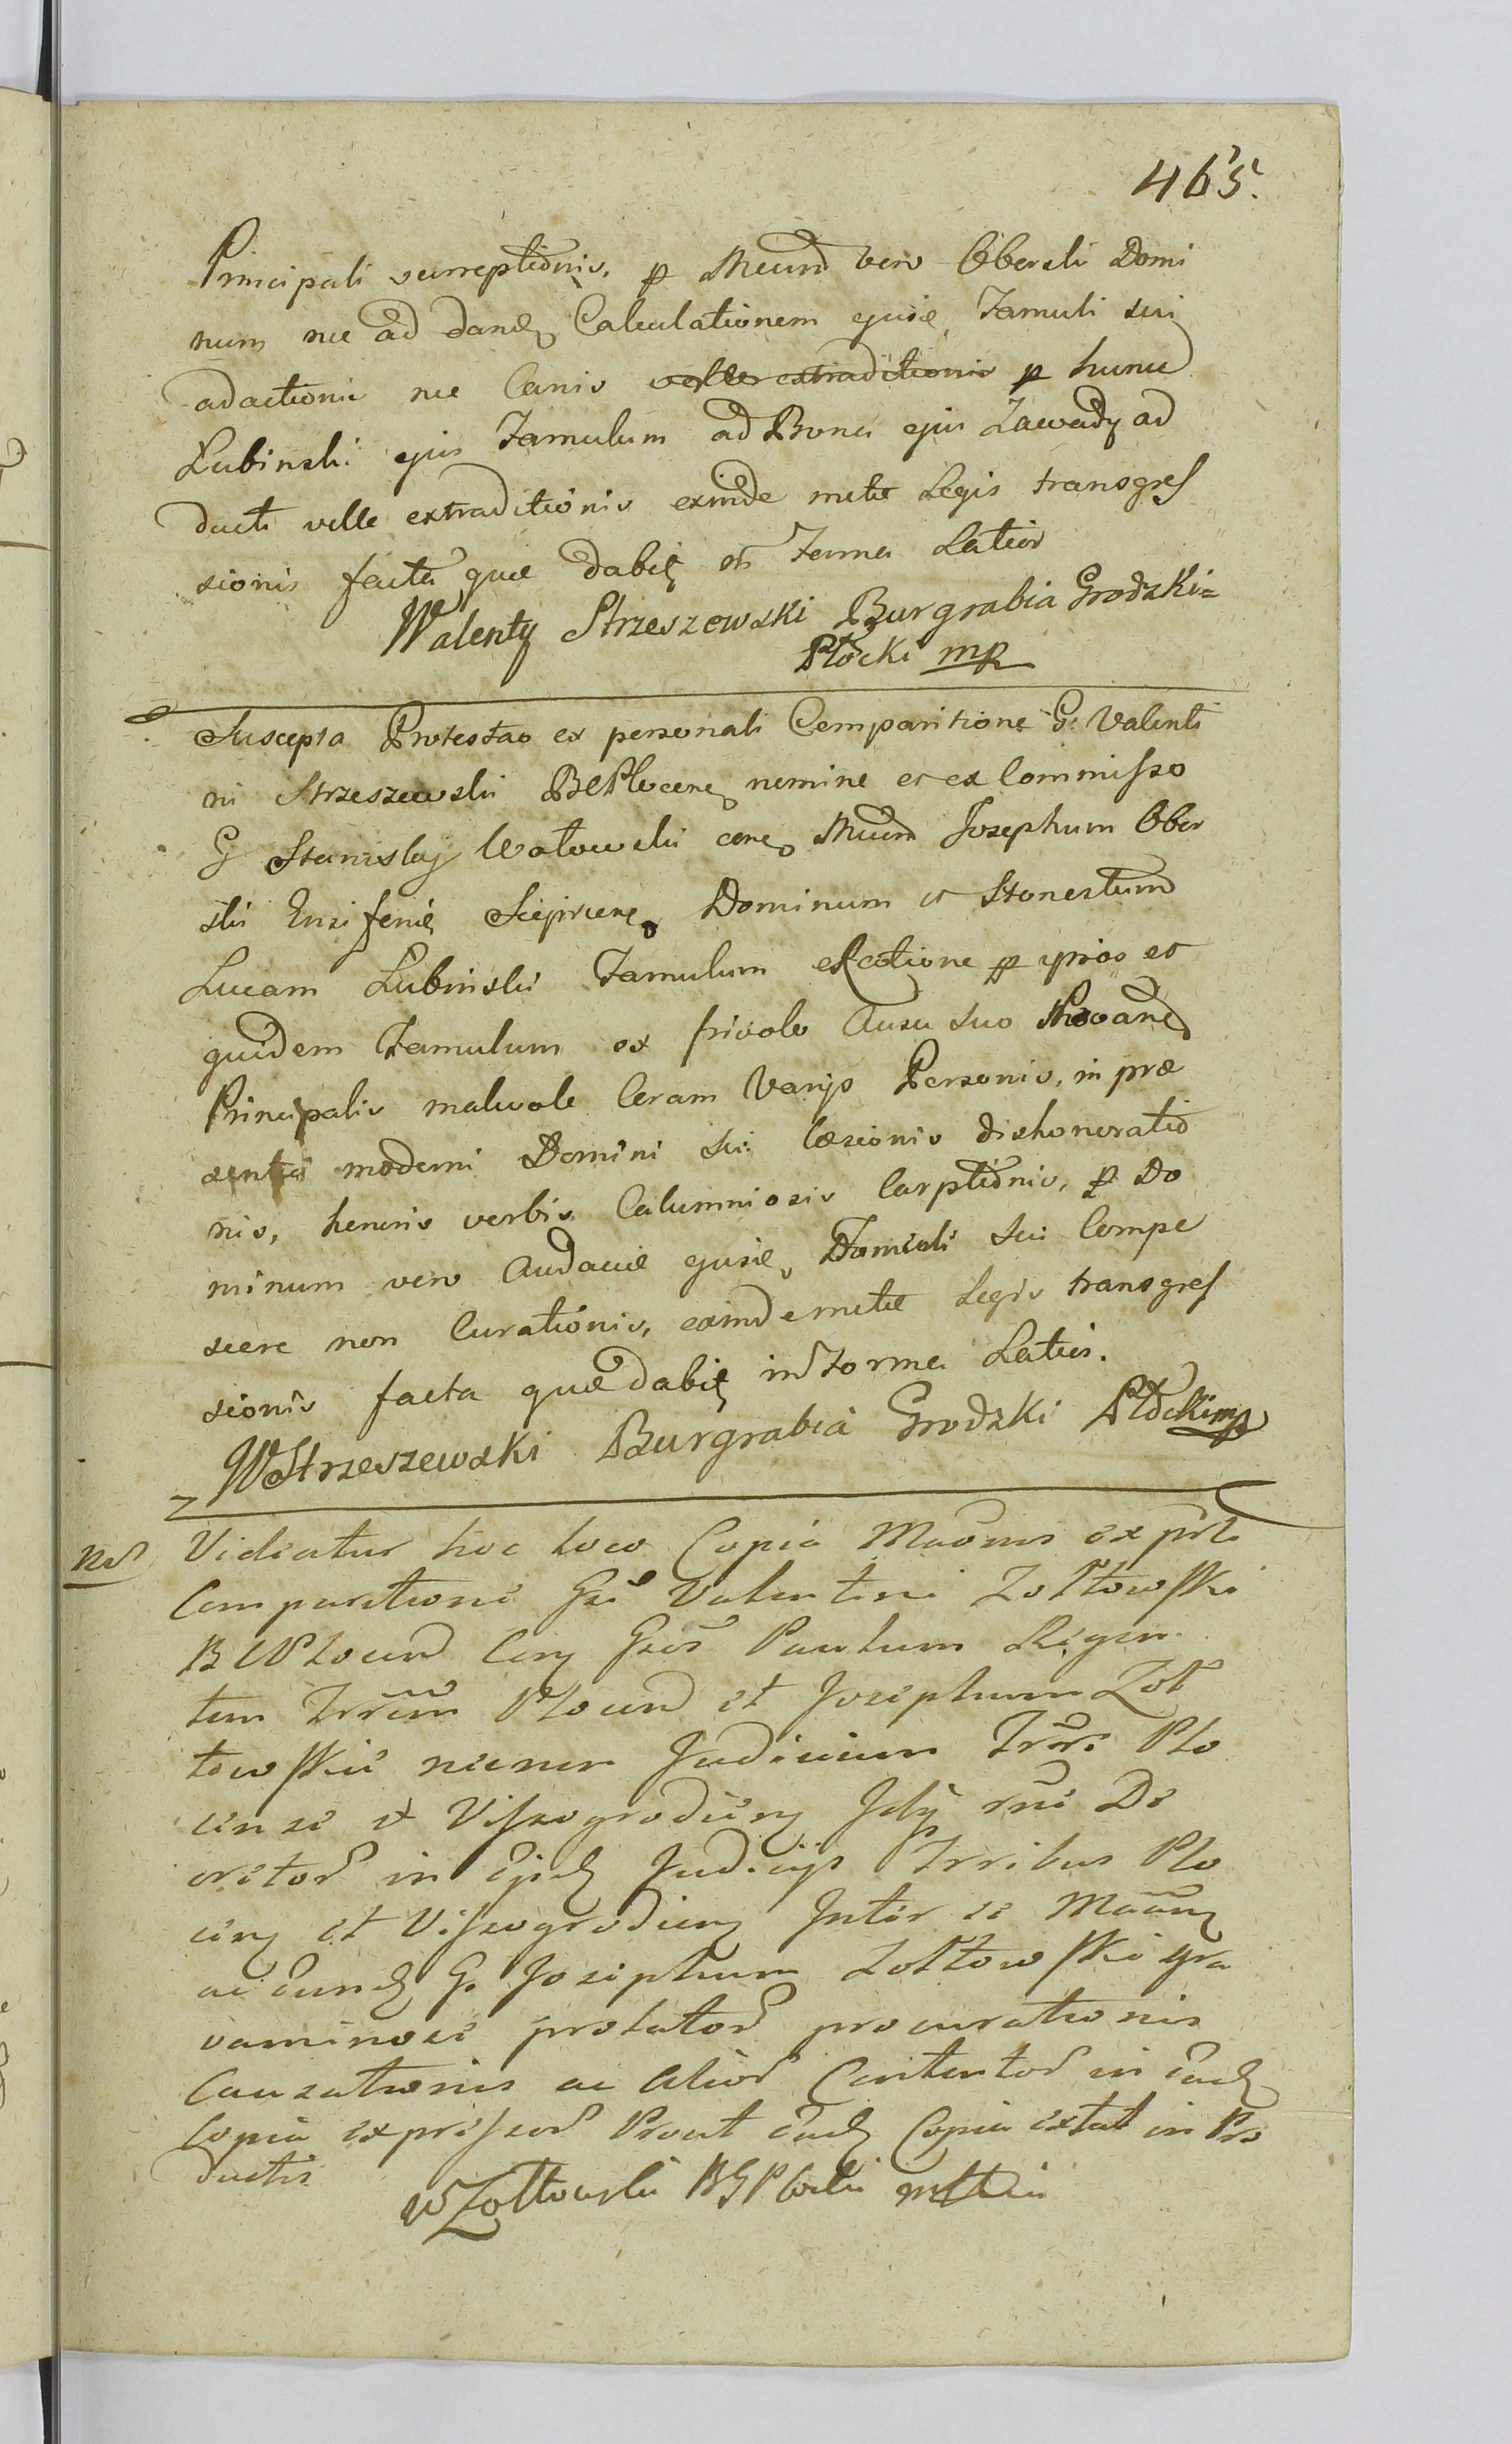 465.
Principali surreptionis, p Mcum vero Oberski Domi
num nec ad dand Calculationem ejusd Famuli sui
adactionis nec Canis velle extraditionis p hunc
Lubinski ejus Famulum ad Bona ejus Zawady ad
ducti velle extraditionis exinde metae Legis transgres
sionis facta quae dabit in Forma Latior
Walenty Strzeszewski Burgrabia Grodzki
Płocki mp
Suscepta Protestao ex personali Comparitione G. Valenti
ni Strzeszewski BCPlocen nomine et ex Commisso
G Stanislaj Watowski con Mcum Josephum Ober
ski Ensiferu Sieprcen Dominum et Honestum
Lucam Lubinski Famulum eRcotione p ipsos et
quidem Famulum ex frivolo Ausu suo
Principalis malevole Coram Varijs Personis, in prae
sentia moderni Domini sui laesionis dishoneratio
nis, honoris verbis Calumniosis Carptionis, p Do
minum vero Audaciae ejusd Famuli sui Compe
scere non Curationis, exinde metae Legis transgres
sionis facta quae dabit in Forma Latius.
WStrzeszewski Burgrabia Grodzki Płocki mp
NB Videatur hoc loco Copia Maonis ex prli
Comparitione Gsi Valentini Zołtowski
BCPlocen Con Gsos Paulum Regen
tem Trrem Plocen et Josephum Zoł
towskie necnon Judicium Trre Plo
cense et Viszogrodien Jdq rne De
cretor in ejusd Judicijs Trribus Plo
cen et Viszogrodien Inter se Maan
ac eund G. Josephum Zołtowski gra
vaminose prolator procurationis
Causationis ac alior Contentor in ead
Copia expressor Prout ead Copia extat in Pro
ductis
WZołtowski BGPłocki mp